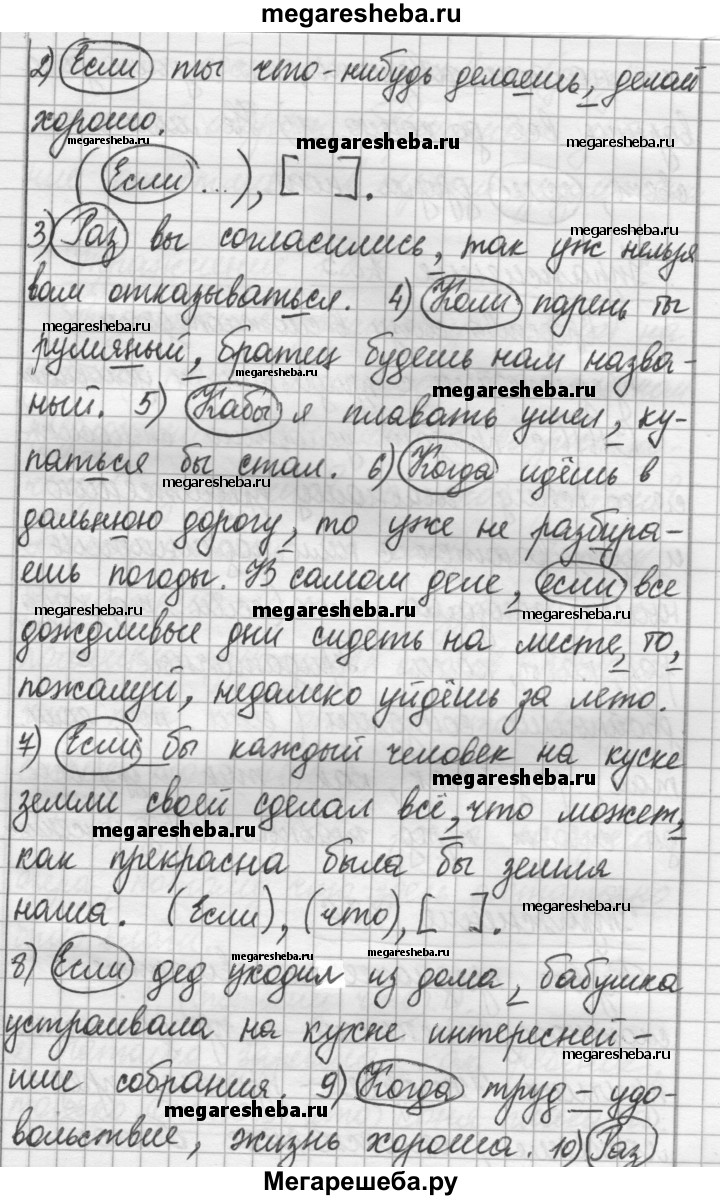 megaresheba.ru
2) Если ты что-нибудь делаешь, делай
megaresheba.ru
хорошо.
megaresheba.ru
megaresheba.ru
megaresheba.ru
(Если ...), [ ].
3) Раз вы согласились, так уж нельзя
megaresheba.ru
вам отказываться. 4) Коли парень ты
megaresheba.ru
румяный, братец будешь нам назва-
megaresheba.ru
megaresheba.ru
ный. 5) Кабы я плавать умел, ку-
паться бы стал. 6) Когда идёшь в
megaresheba.ru
megaresheba.ru
дальнюю дорогу, то уже не разбира-
ешь погоды. В самом деле, если все
megaresheba.ru
megaresheba.ru
дождливые дни сидеть на месте, то,
пожалуй, недалеко уйдёшь за лето.
7) Если бы каждый человек на куске
megaresheba.ru
земли своей сделал всё, что может,
megaresheba.ru
как прекрасна была бы земля
наша. (Если), (что), [ ].
megaresheba.ru
megaresheba.ru
megaresheba.ru
8) Если дед уходил из дома, бабушка
устраивала на кухне интересней-
megaresheba.ru
шие собрания. 9) Когда труд - удо-
megaresheba.ru
вольствие, жизнь хороша. 10) Раз
megaresheba.ru
Мегарешеба.ру